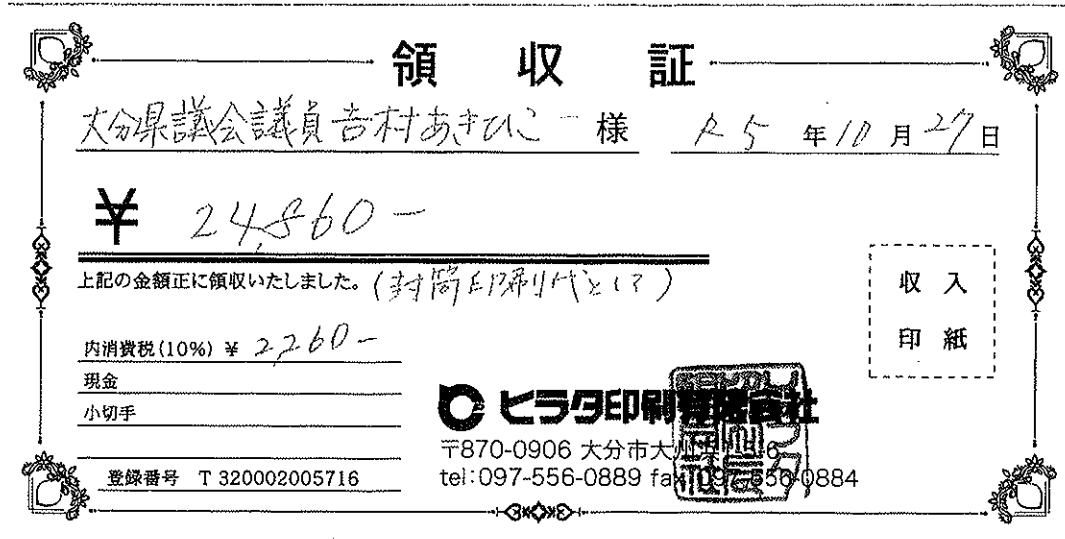 領収証
大分県議会議員吉村あきひこ 様 R5年10月27日
¥ 24,860-
上記の金額正に領収いたしました。(封筒印刷代として)
収入
印紙
内消費税(10%) ¥ 2,260-
現金
小切手
登録番号 T 3200002005716
ヒラタ印刷有限会社
〒870-0906 大分市大州浜
tel:097-556-0889 fax:097-556-0884